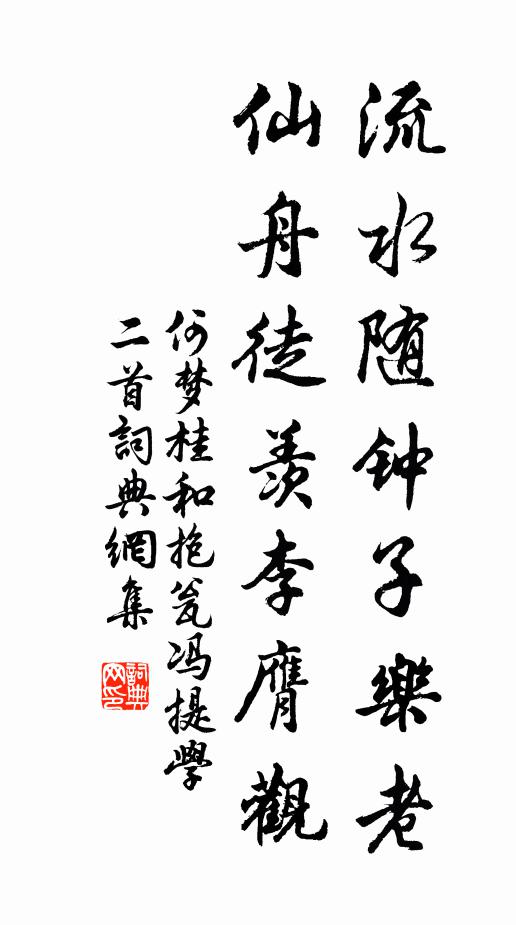 流水随钟子樂老
仙舟徒羡李膺觀
何梦桂和抱瓮冯提學
二首詞典網集
詞典网印